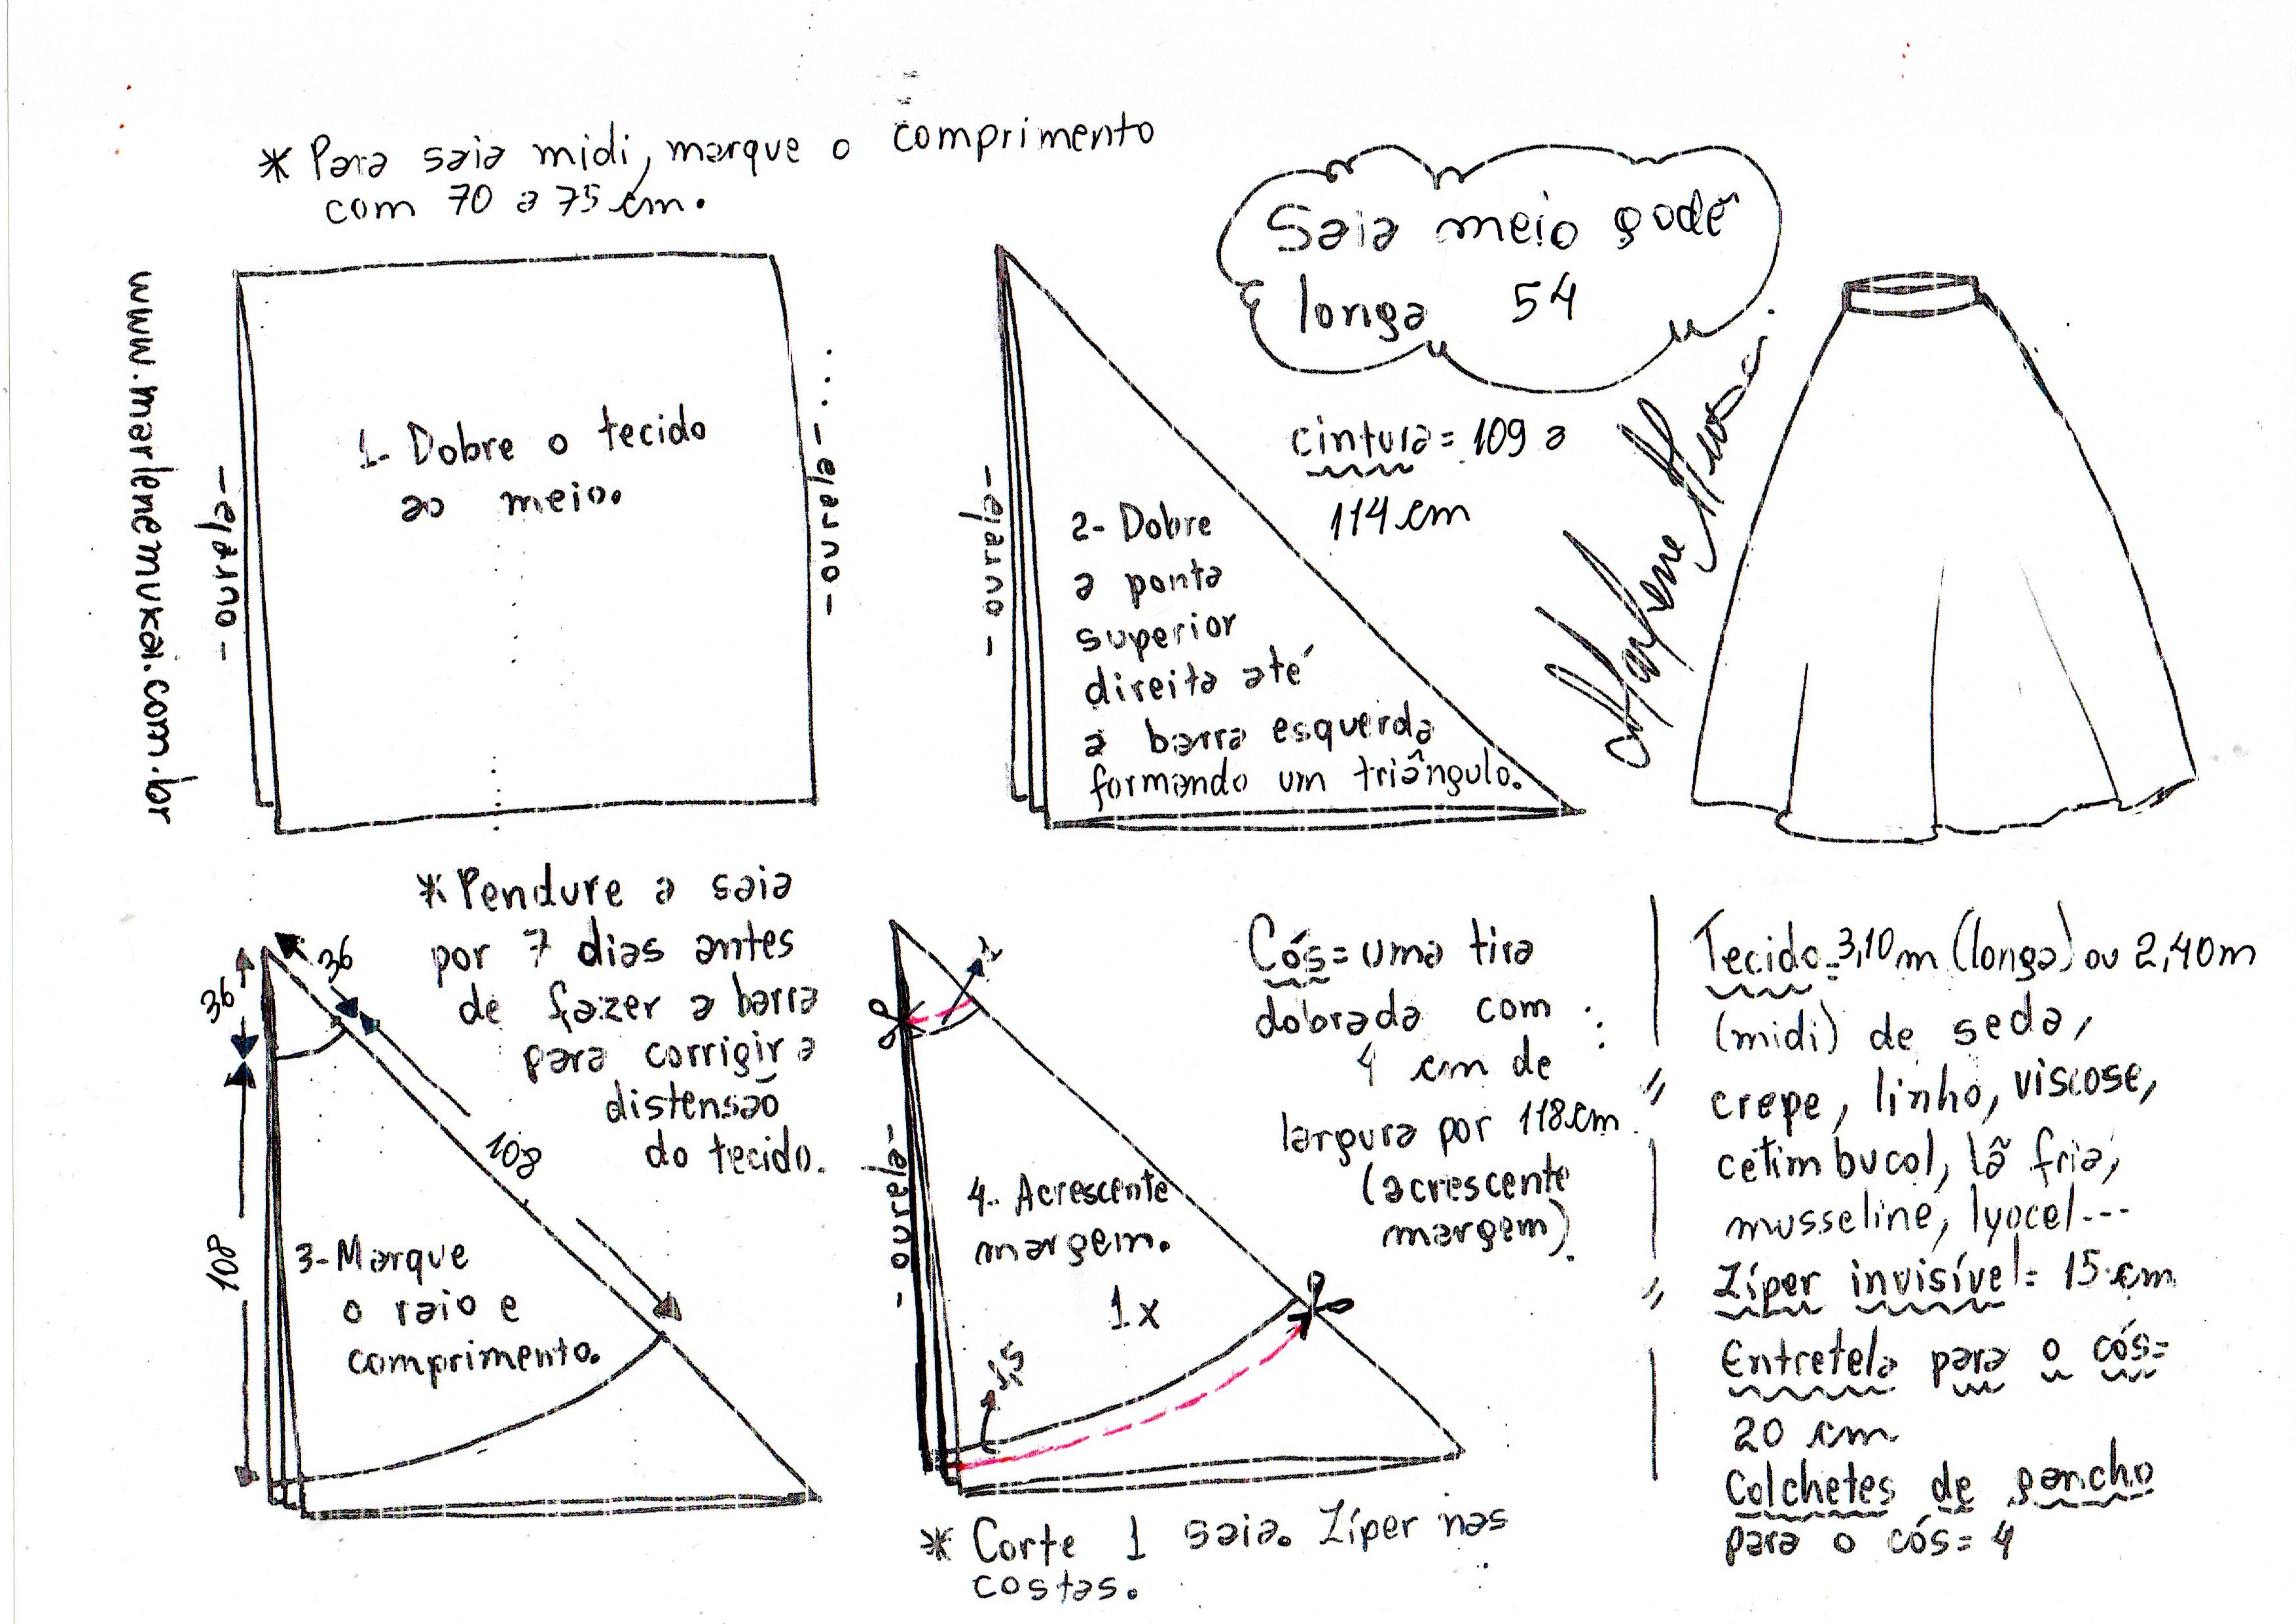 * Para saia midi, marque o comprimento
com 70 a 75 cm.
Saia meio godê
longa 54
www.marlenemukai.com.br
- ourela -
1- Dobre o tecido
ao meio.
- ourela -
- ourela -
2- Dobre
a ponta
superior
direita até
a barra esquerda
formando um triângulo.
cintura = 109 a
114 cm
Marlene Mukai
* Pendure a saia
por 7 dias antes
de fazer a barra
para corrigir a
distensão
do tecido.
36
36
108
108
3- Marque
o raio e
comprimento.
- ourela -
4- Acrescente
margem.
1x
1,5
* Corte 1 saia. Zíper nas
costas.
Cós = uma tira
dobrada com
4 cm de
largura por 118 cm
(acrescente
margem).
Tecido = 3,10 m (longa) ou 2,40 m
(midi) de seda,
crepe, linho, viscose,
cetim bucol, lã fria,
musseline, lyocel...
Zíper invisível = 15 cm
Entretela para o cós =
20 cm
Colchetes de gancho
para o cós = 4